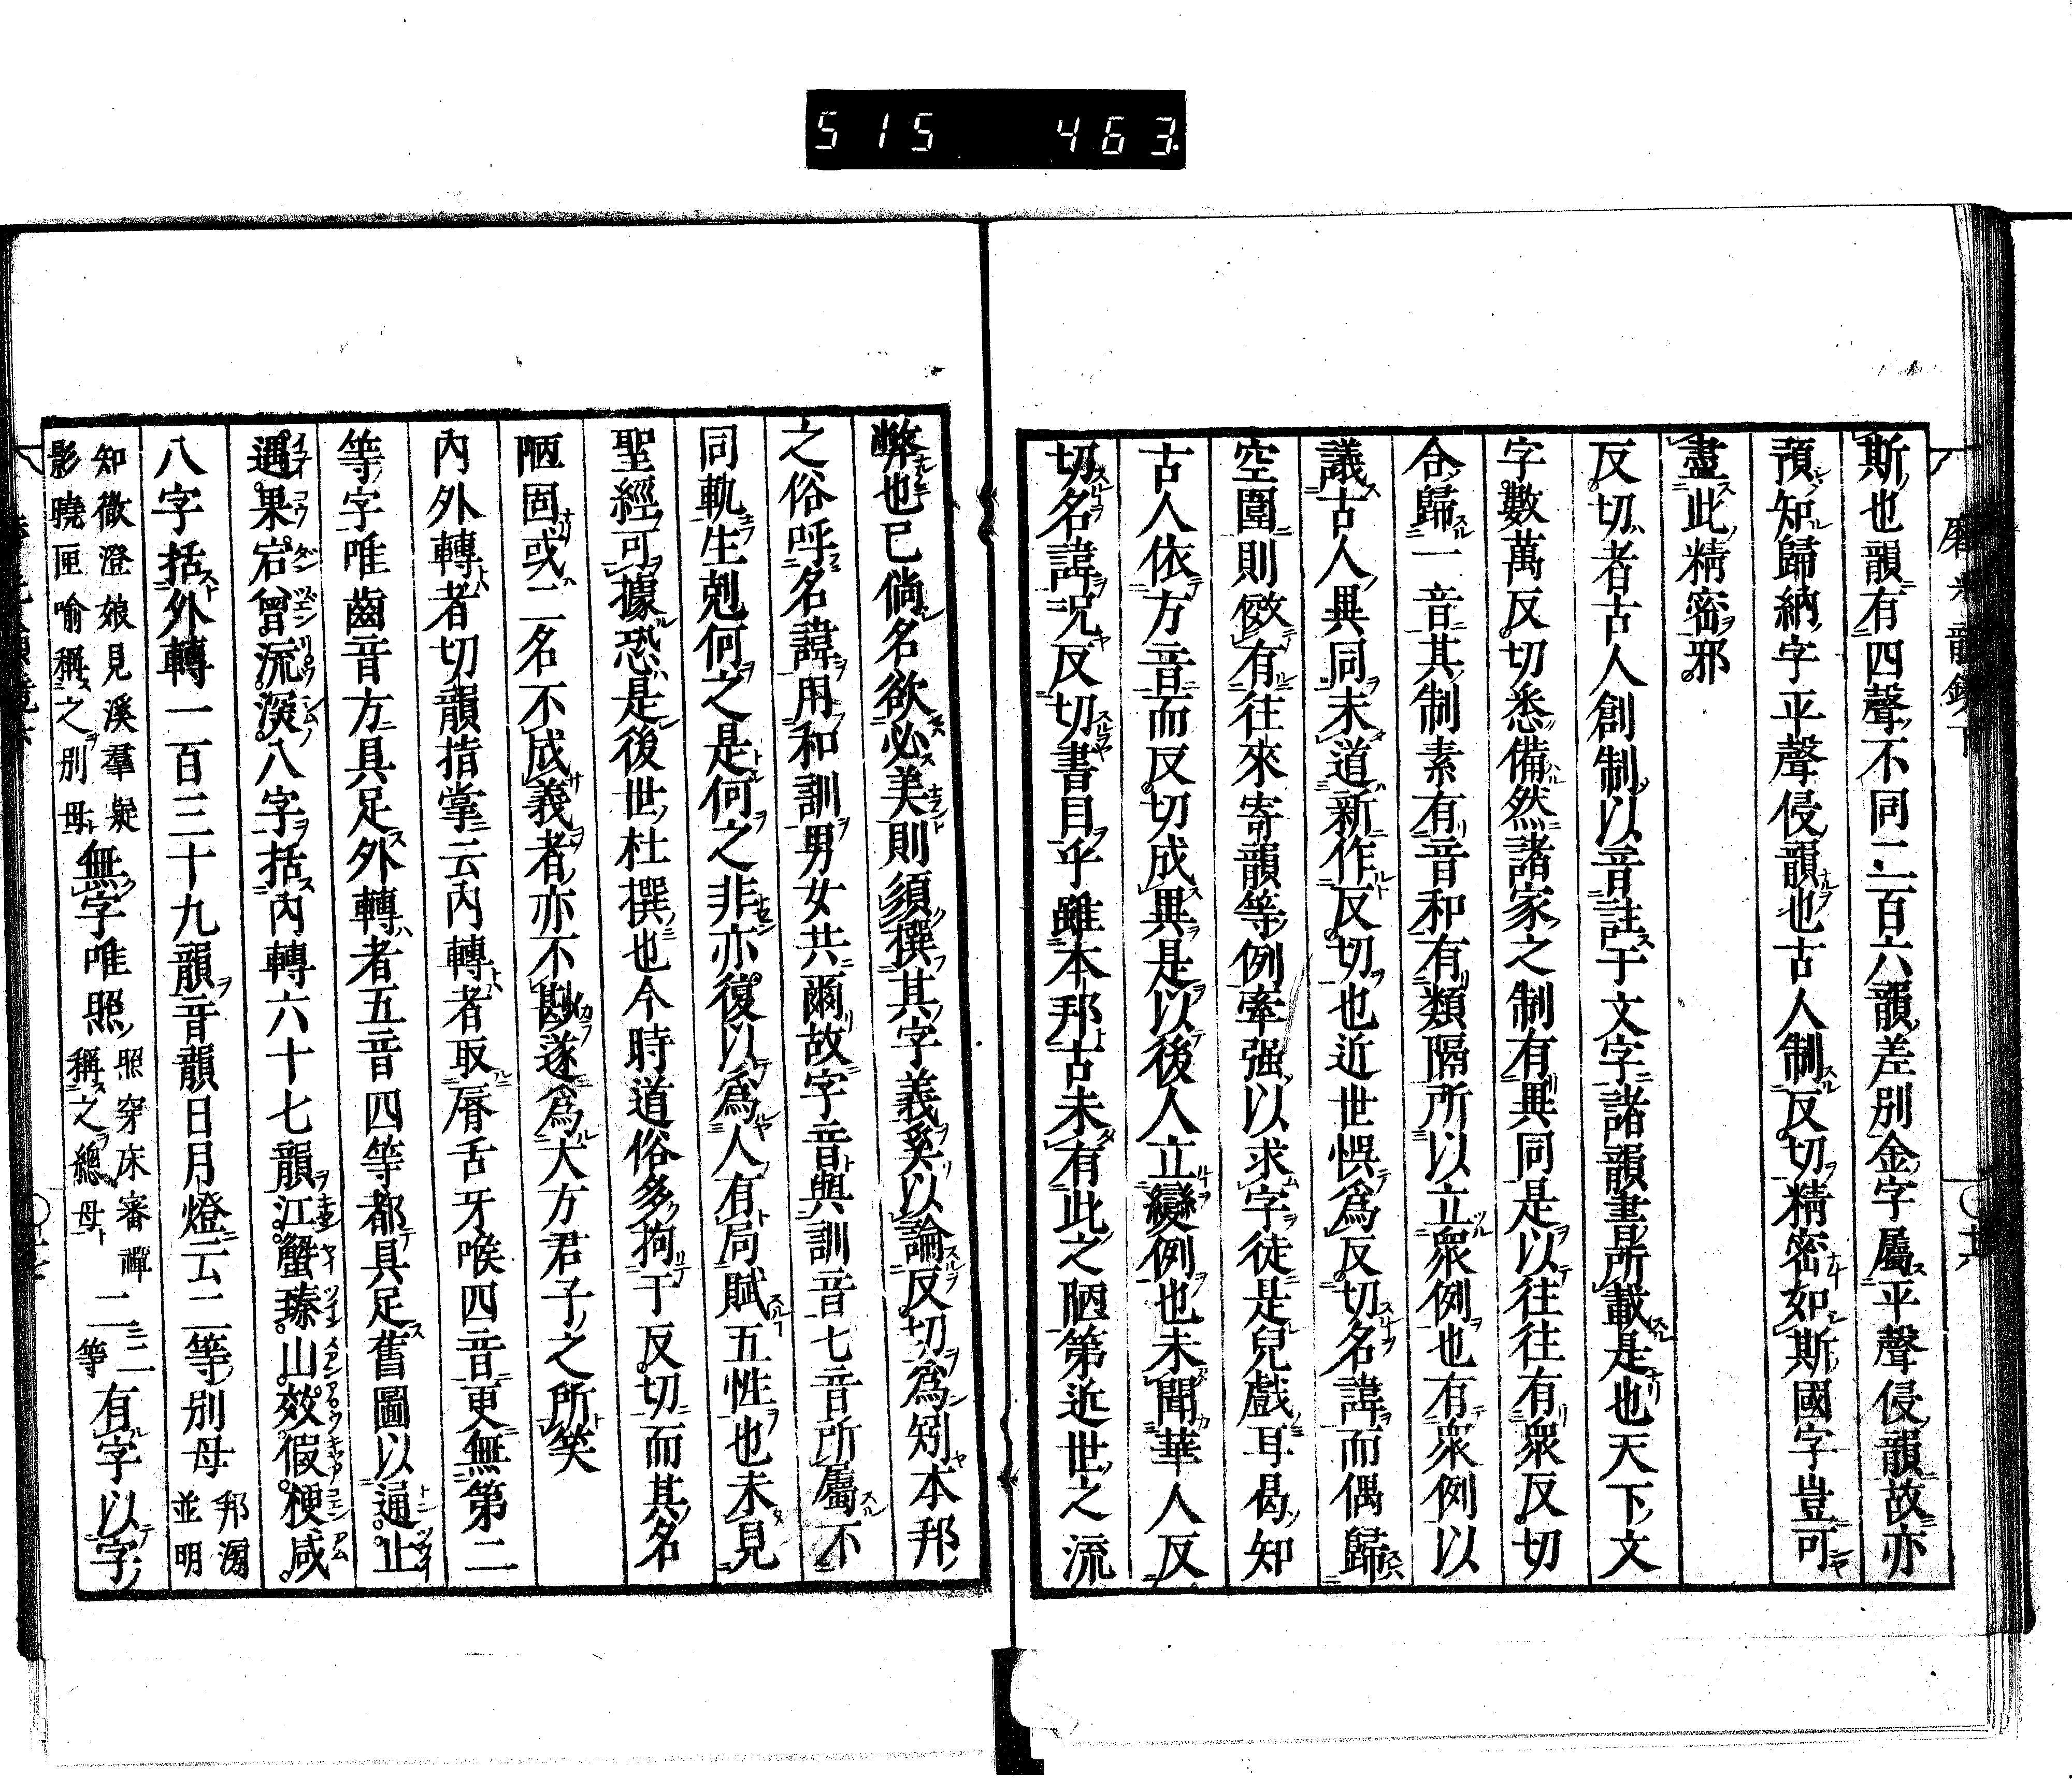 515 463
磨光韻鏡下
斯也韻有四聲不同二百六韻差別金字屬平聲侵韻故亦
預知歸納字平聲侵韻也古人制反切精密如斯國字豈可
盡此精密邪
反切者古人創制以音註于文字諸韻書所載是也天下文
字數萬反切悉備然諸家之制有異同是以往往有眾反切
合歸一音其制素有音和有類隔所以立眾例也有眾例以
議古人異同未道新作反切也近世悞為反切名諱而偶歸
空圍則傚有往來寄韻等例牽强以求字徒是兒戲耳曷知
古人依方音而反切成異是以後人立變例也未聞華人反
切名諱況反切書目乎雖本邦古未有此之陋第近世之流
弊也已倘名欲必美則須撰其字義奚以論反切為矧本邦
之俗呼名諱用和訓男女共爾故字音與訓音七音所屬不
同軌生剋何之是何之非亦復以為人有局賦五性也未見
聖經可據恐是後世杜撰也今時道俗多拘于反切而其名
陋固或二名不成義者亦不勘遂為大方君子之所笑
內外轉者切韻指掌云內轉者取脣舌牙喉四音更無第二
等字唯齒音方具足外轉者五音四等都具足舊圖以通止
遇果宕曾流深八字括內轉六十七韻江蟹臻山效假梗咸
八字括外轉一百三十九韻音韻日月燈云二等別母邦滂並明
知徹澄娘見溪羣疑影曉匣喻稱之別母無字唯照照穿床審禪稱之總母二二三等有字以字